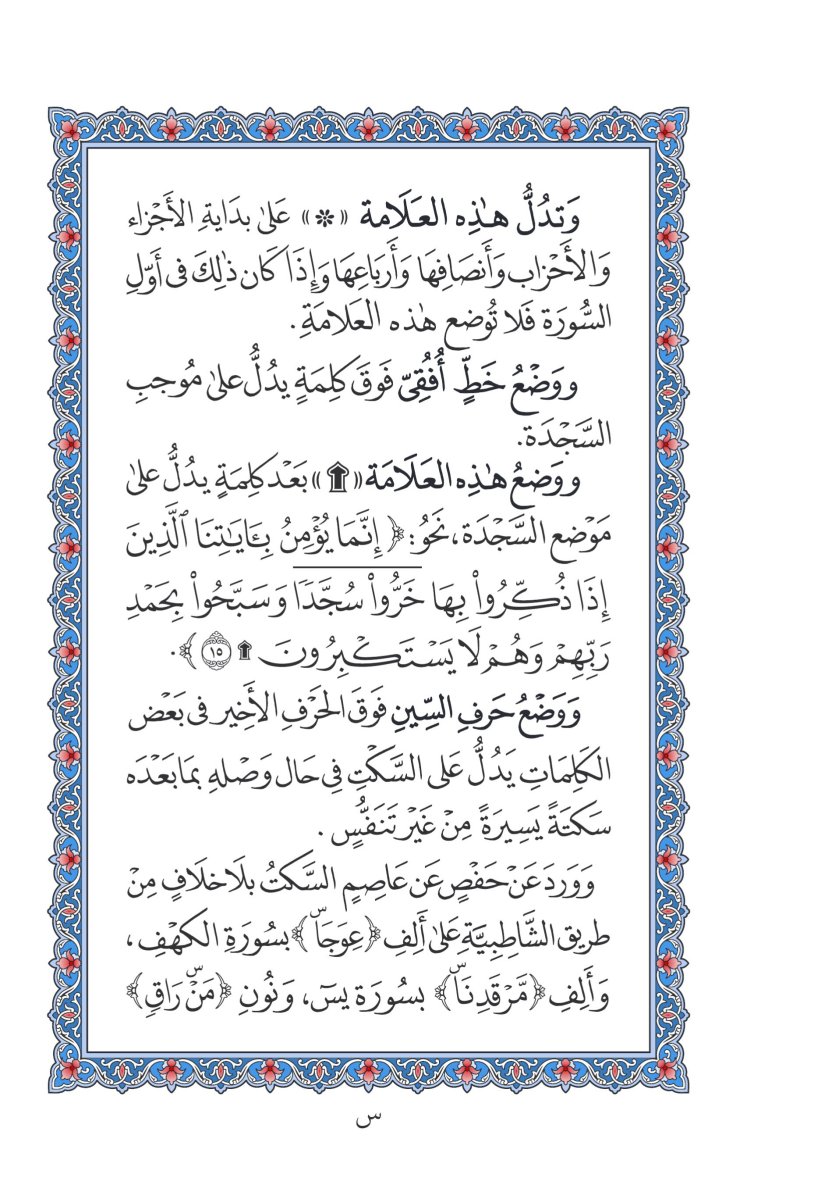 وَتدُلُّ هـٰذِه العَلَامة «❊» عَلىٰ بدَايةِ الأَجْزاء
وَالأَحْزاب وَأَنصَافِهَا وَأَربَاعِهَا وَإِذَا كَان ذٰلِكَ فى أَوّلِ
السُّورَة فَلا تُوضع هٰذه العَلامَةِ .
ووَضْعُ خَطٍّ أُفُقِىّ فَوقَ كلِمَةٍ يدُلُّ علىٰ مُوجبِ
السَّجْدَة.
ووَضعُ هـٰذِه العَلَامَة «۩» بَعْد كلِمَةٍ يدُلُّ علىٰ
مَوْضع السَّجْدَة، نَحوُ: ﴿ إِنَّمَا يُؤْمِنُ بِـَٔايَـٰتِنَا ٱلَّذِينَ
إِذَا ذُكِّرُوا۟ بِهَا خَرُّوا۟ سُجَّدًا وَسَبَّحُوا۟ بِحَمْدِ
رَبِّهِمْ وَهُمْ لَا يَسْتَكْبِرُونَ ۩ ١٥ ﴾.
وَوَضْعُ حَرفِ السِّينِ فَوقَ الحَرْفِ الأخِير فى بَعْض
الكَلِمَاتِ يَدُلُّ عَلى السَّكْتِ فِى حَال وَصْلهِ بمَا بَعْدَه
سَكتَةً يَسِيرَةً مِنْ غَيْر تَنَفُّسٍ .
وَوَردَ عَنْ حَفْصٍ عَن عَاصِمٍ السَّكتُ بلَا خلَافٍ مِنْ
طريق الشَّاطِبيَّةِ عَلىٰ أَلِفِ ﴿عِوَجَاۜ﴾ بسُورَةِ الكهْفِ،
وَأَلِفِ ﴿مَّرْقَدِنَاۜ﴾ بسُورَة يسٓ، وَنُونِ ﴿مَنْۜ رَاقٍ﴾
س